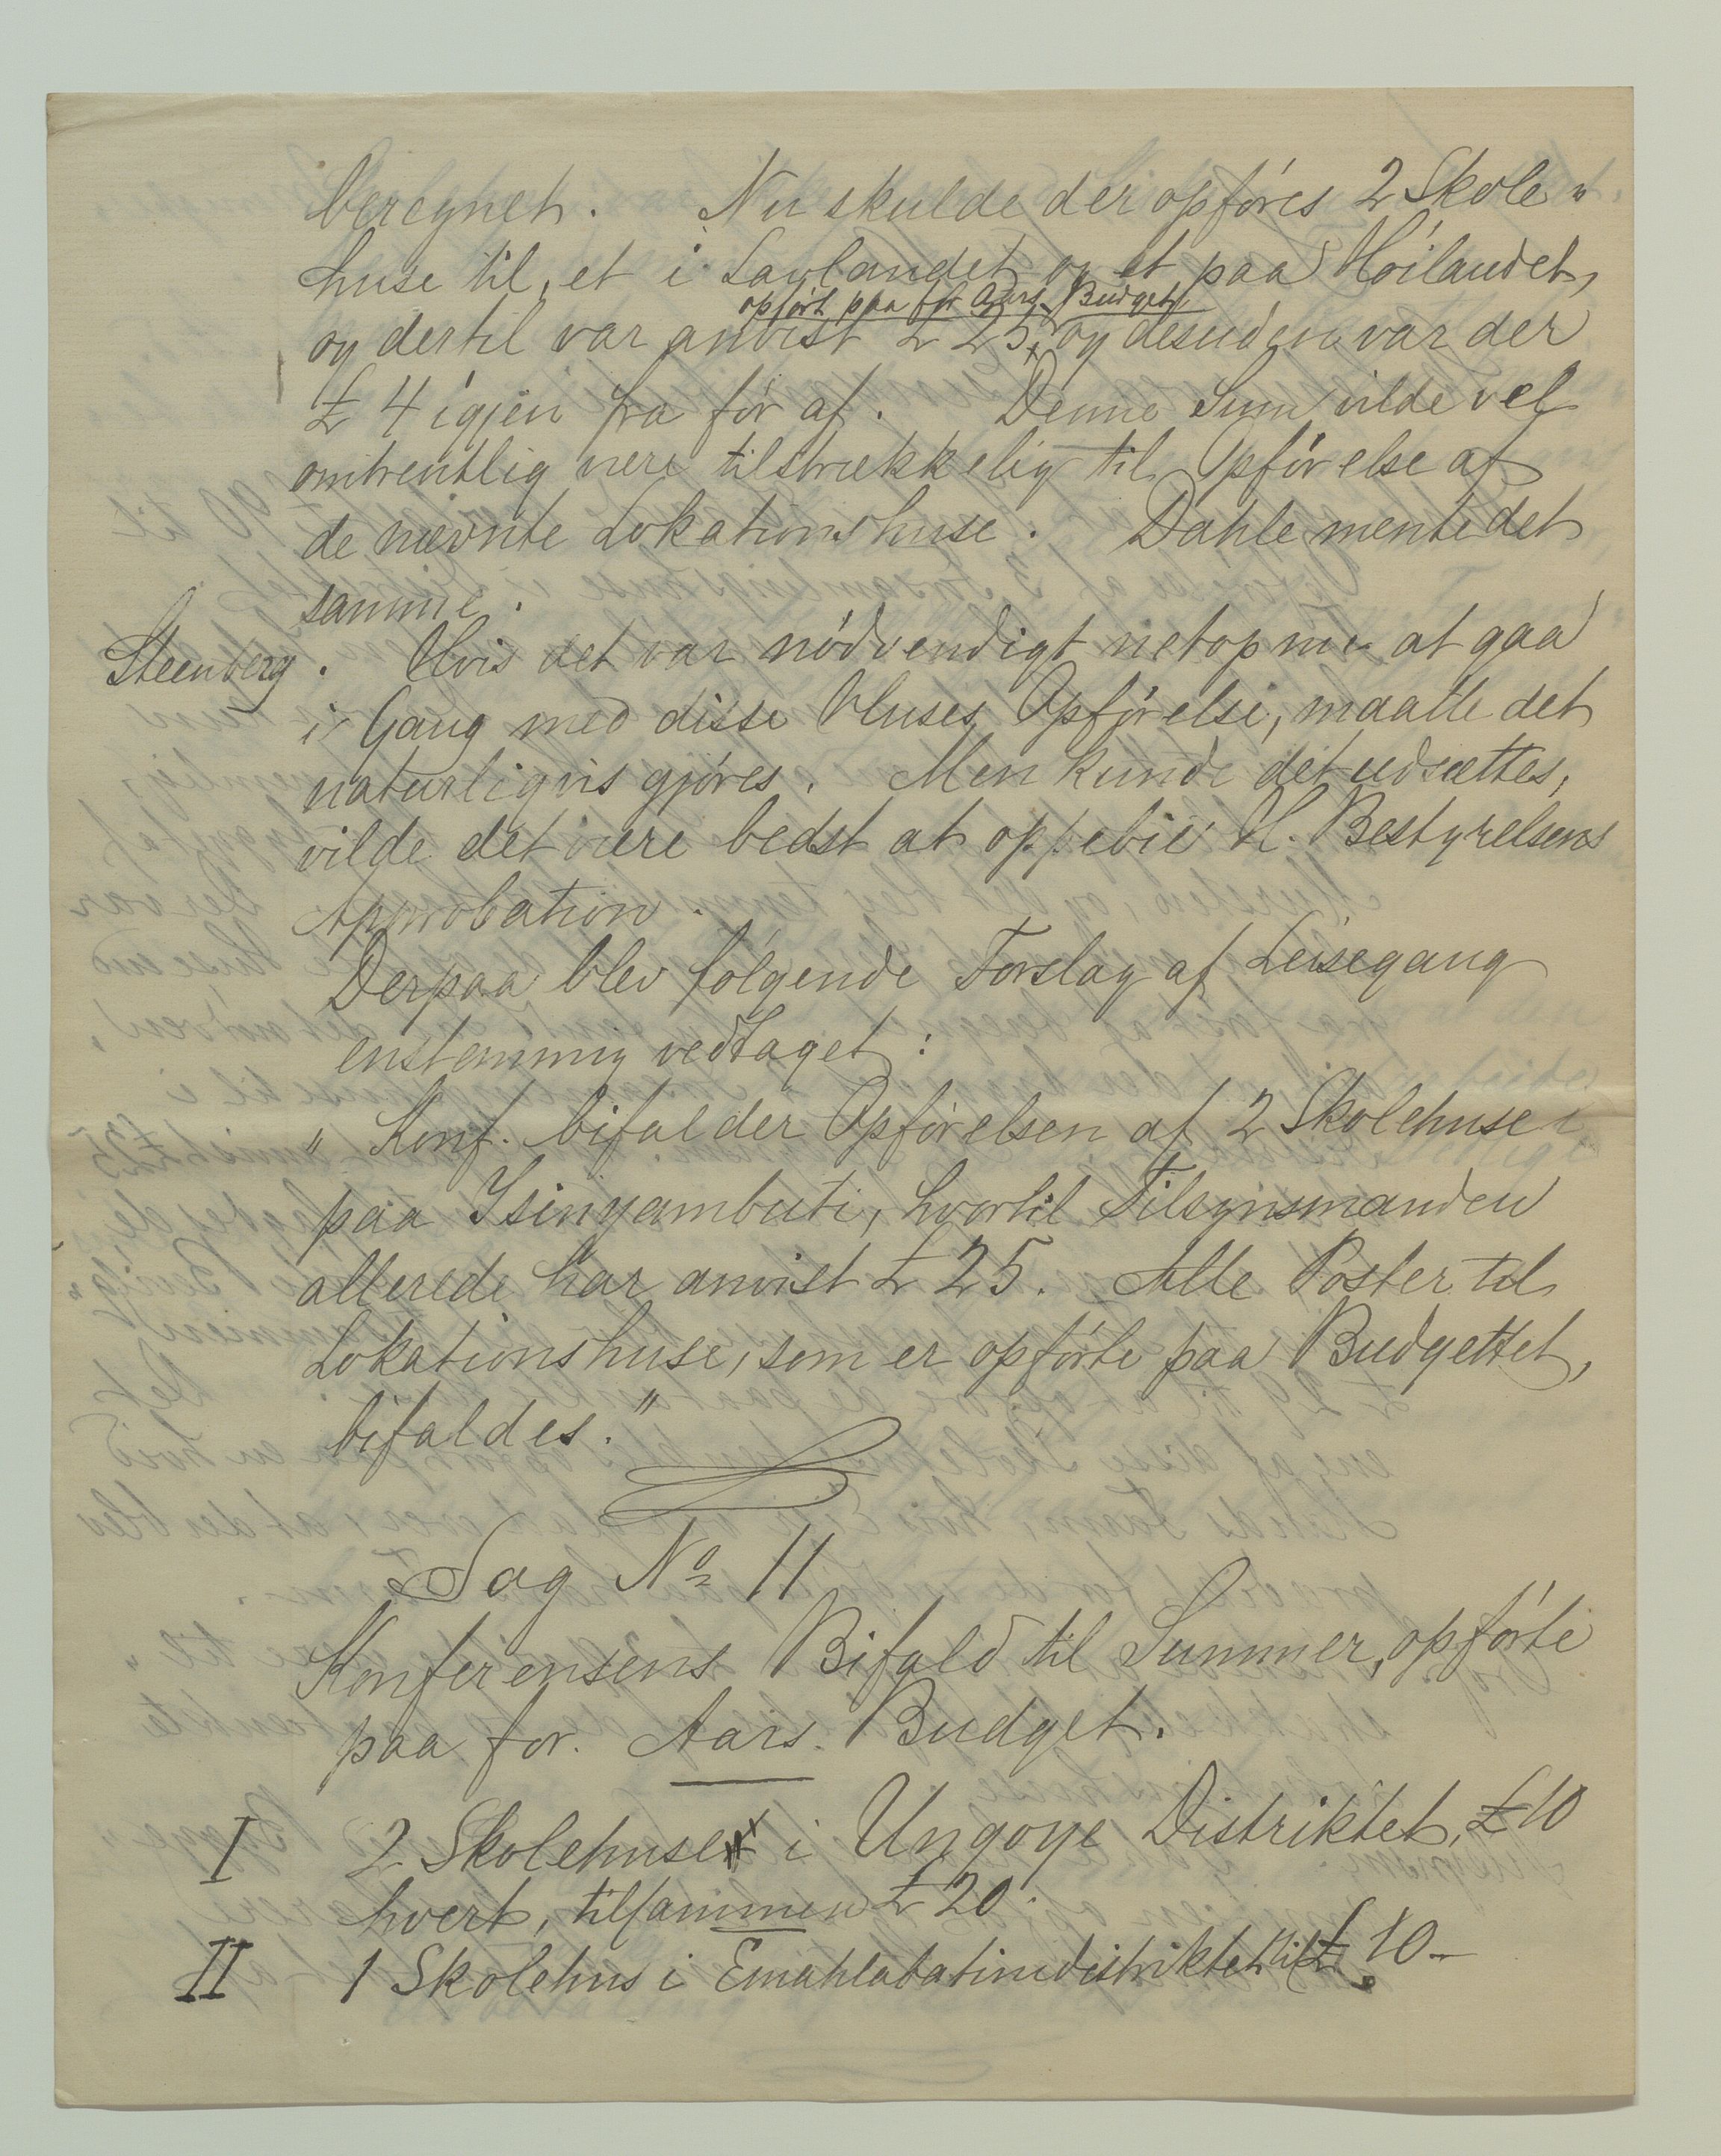 beregnet. Nu skulde der opføres 2 Skole„
huse til, et i Lavlandet og et paa Høilandet,
opført paa for. Aars Budget,
og dertil var anvist £ 25, og desuden var der
£ 4 igjen fra før af. Denne Sum vilde vel
omtrentlig være tilstrækkelig til Opførelse af
de nævnte Lokationshuse. Dahle mente det
samme.
Steenberg. Hvis det var nødvendigt netop nu at gaa
i Gang med disse Huses Opførelse, maatte det
naturligvis gjøres. Men kunde det udsættes,
vilde det være bedst at oppebie H. Bestyrelsens
Approbation.
Derpaa blev følgende Forslag af Leisegang
enstemmig vedtaget:
„Konf. bifalder Opførelsen af 2 Skolehuse i
paa Isinyambuti, hvortil Tilsynsmanden
allerede har anvist £ 25. Alle Poster til
Lokationshuse, som er opførte paa Budgettet,
bifaldes."
Sag No 11
Konferensens Bifald til Summer, opførte
paa for. Aars Budget.
I 2 Skolehuse i Ungoye Distriktet, £ 10
hvert, tilsammen £ 20.
II 1 Skolehus i Emahlabatinidistriktet til £ 10 –